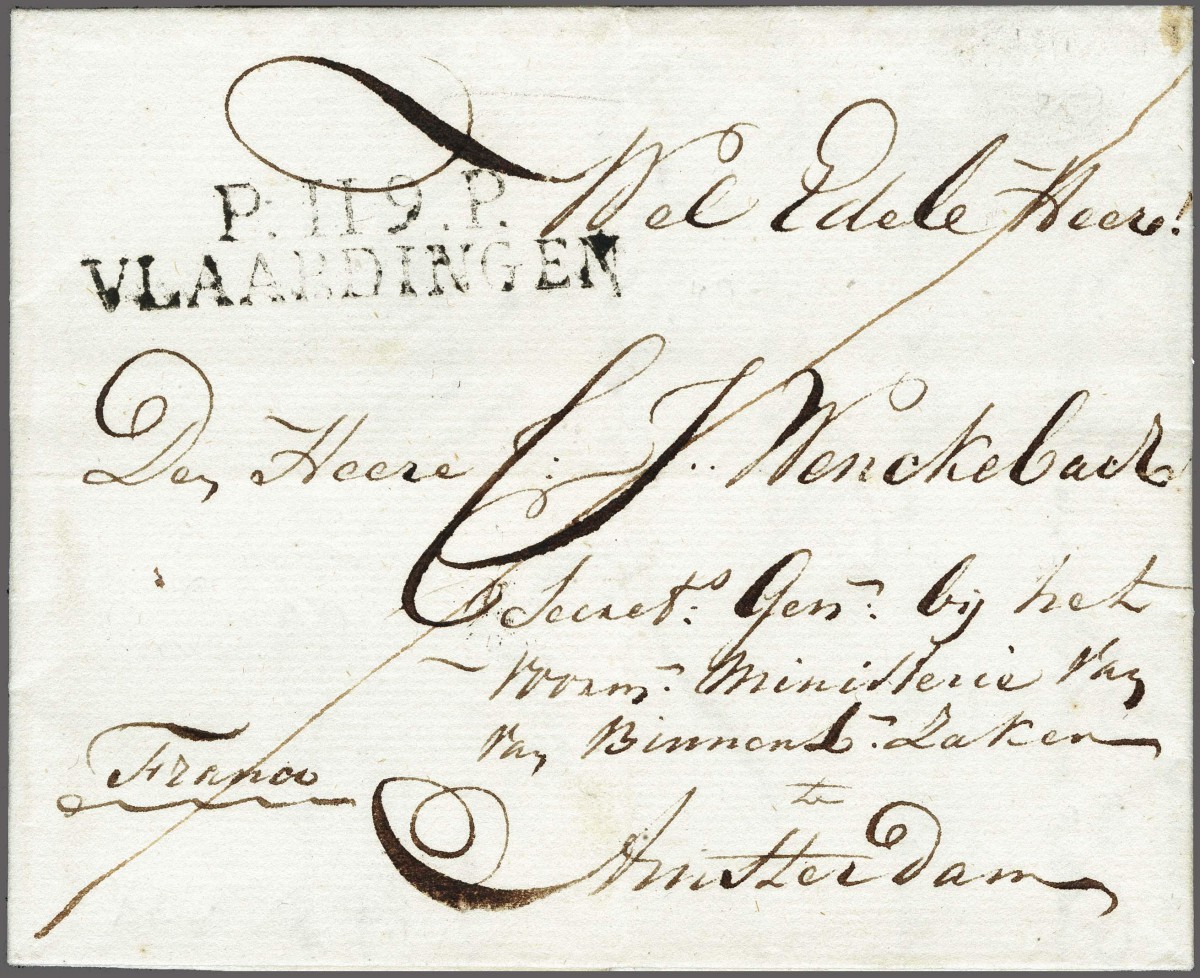 P. 119. P.
VLAARDINGEN
Wel Edele Heer!
Den Heere C: J.. Wenckebach
Secret:s Gen:l bij het
voorm: Ministerie van
van Binnenl: Zaken
te
Amsterdam
Franco